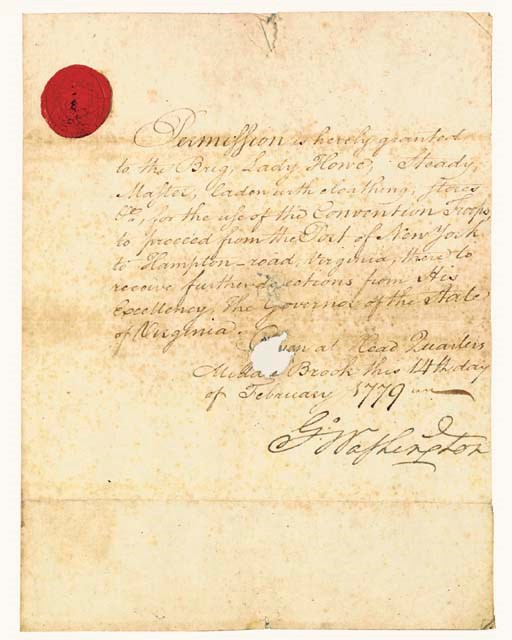 Permission is hereby granted
to the Brig, Lady Howe, Steady,
Master, laden with cloathing, stores
&c., for the use of the Convention Troops,
to proceed from the Port of New York
to Hampton-road, Virginia, there to
receive further directions from His
Excellency, The Governor of the State
of Virginia.
Given at Head Quarters
Middle Brook this 14th day
of February 1779
Go Washington